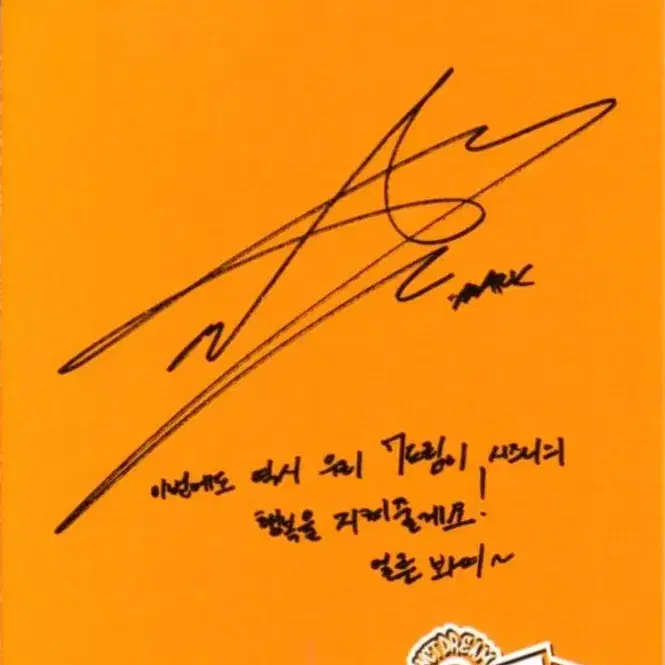 MARK
이번에도 역시 우리 7드림이 시즈니의
행복을 지켜줄게요!
얼른 봐여~
NCT DREAM